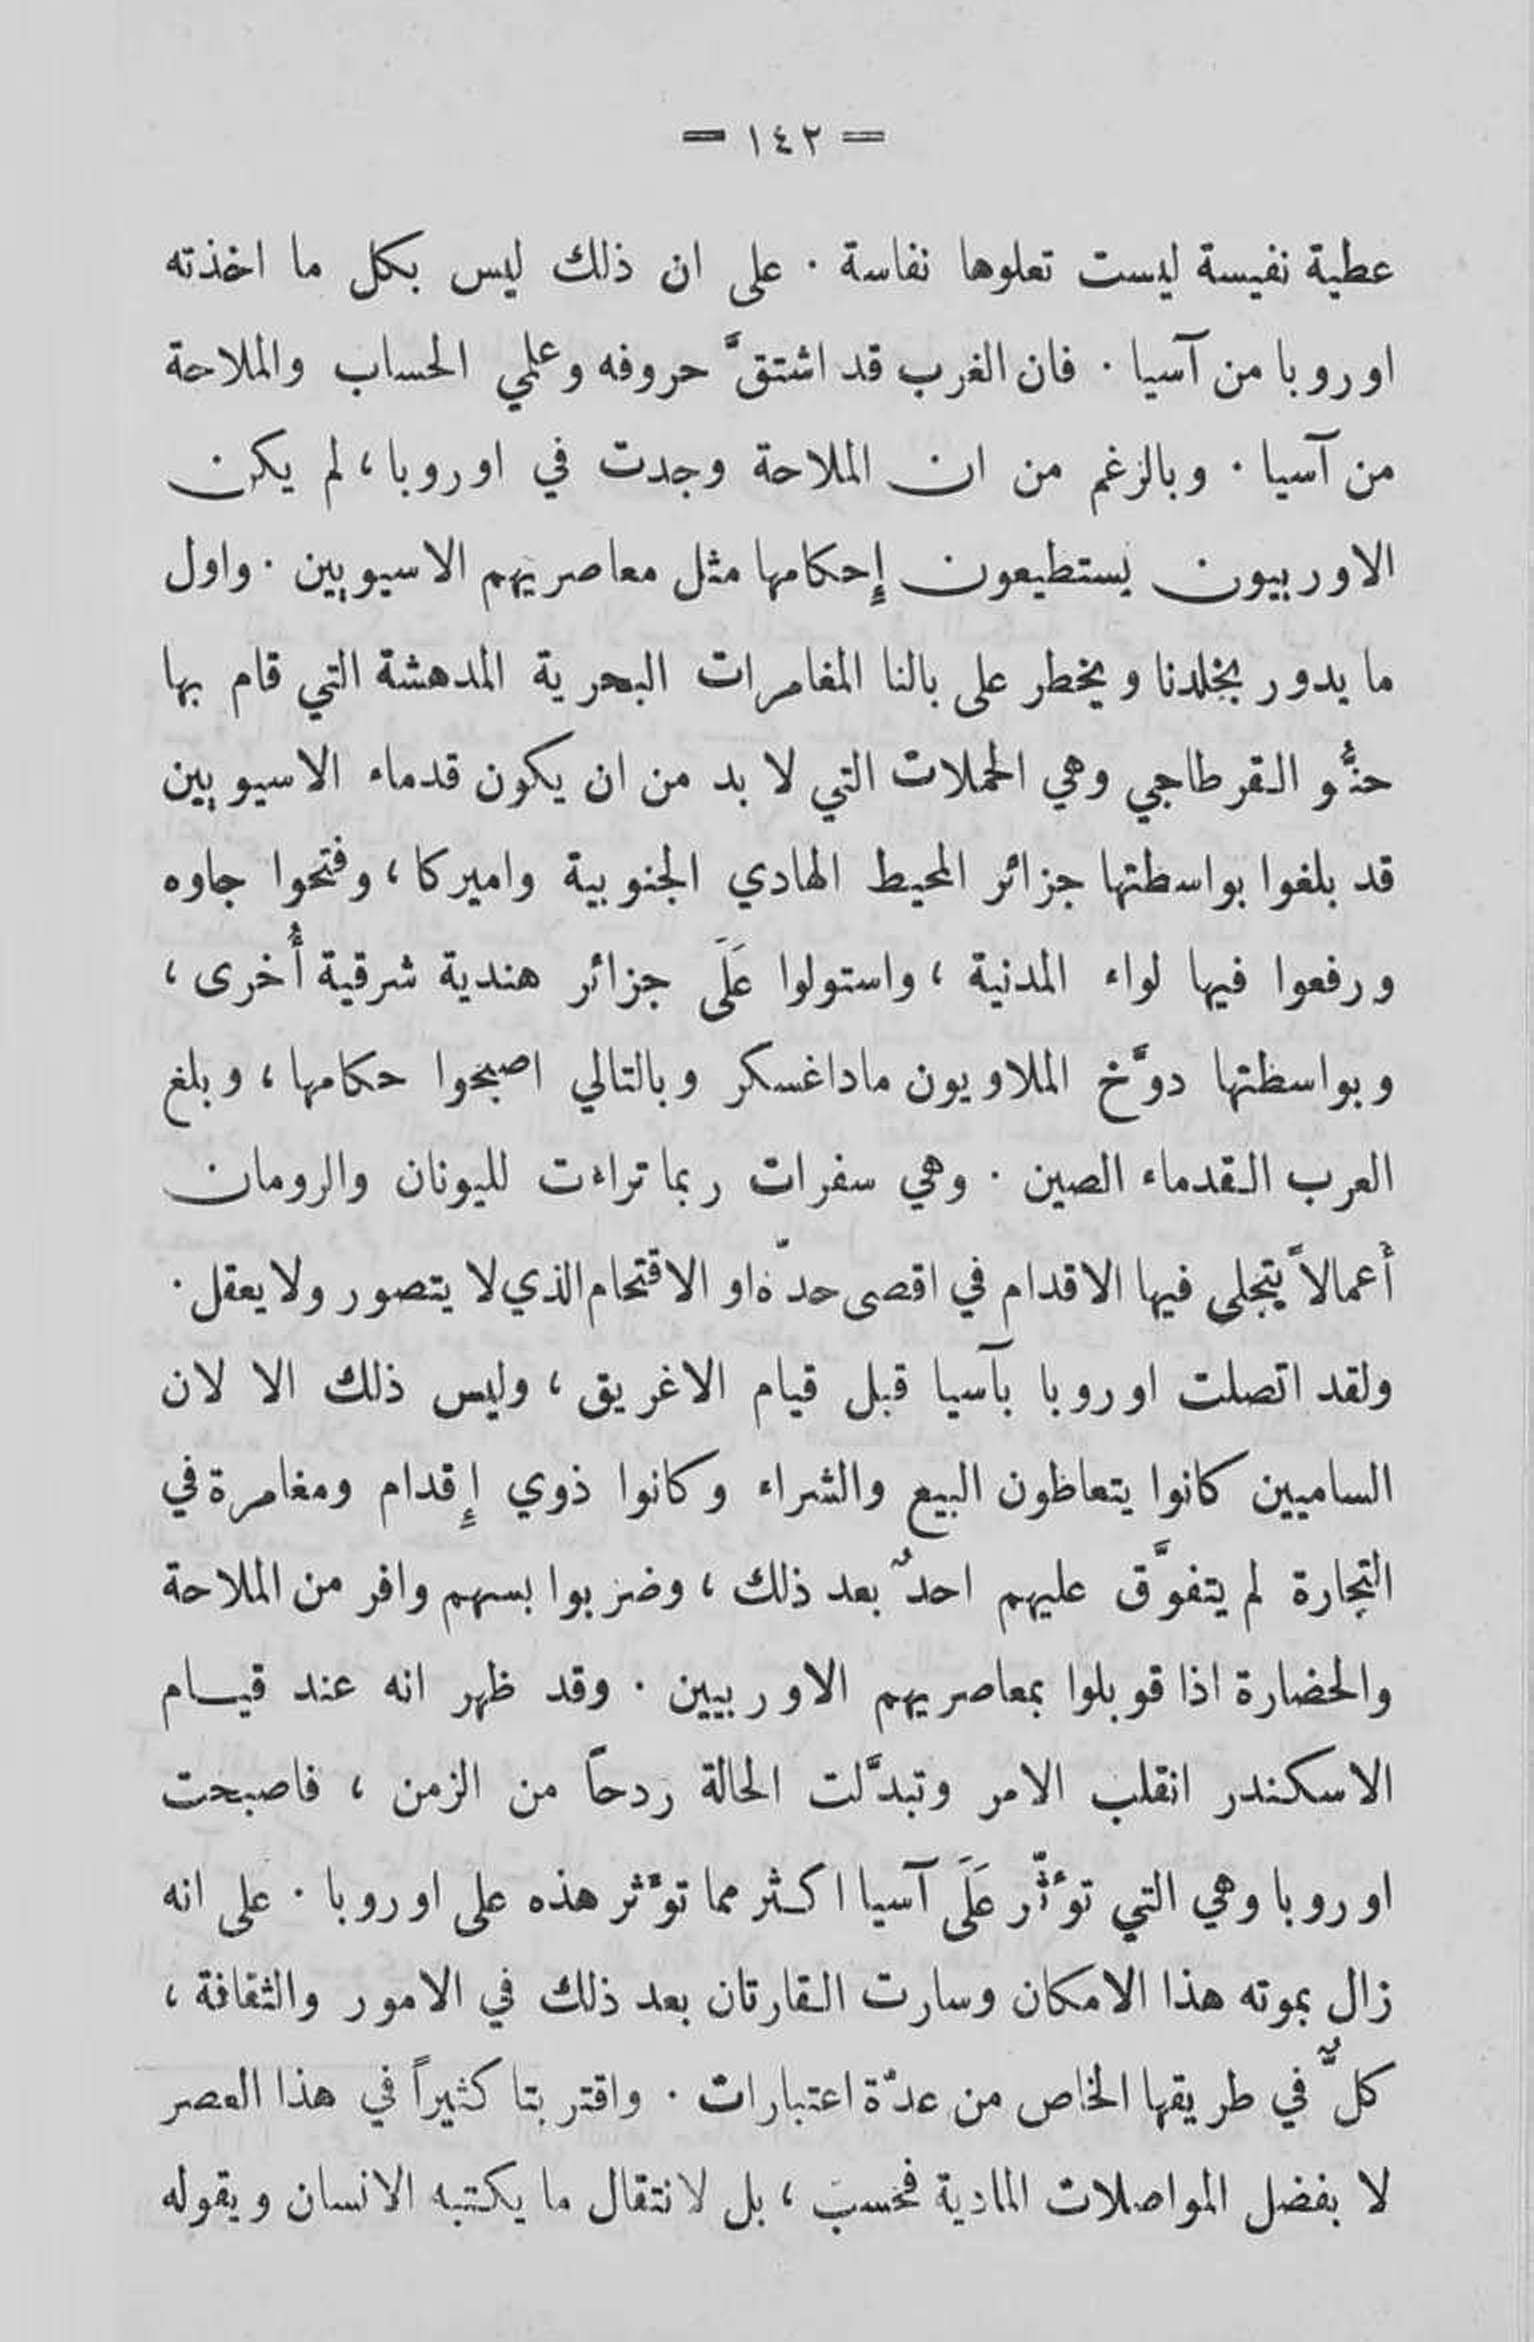 = ١٤٢ =
عطية نفيسة ليست تعلوها نفاسة . على ان ذلك ليس بكل ما اخذته
اوروبا من آسيا . فان الغرب قد اشتقَّ حروفه وعلمي الحساب والملاحة
من آسيا . وبالرغم من ان الملاحة وجدت في اوروبا ، لم يكن
الاوربيون يستطيعون إحكامها مثل معاصريهم الاسيويين . واول
ما يدور بخلدنا ويخطر على بالنا المغامرات البحرية المدهشة التي قام بها
حنُّو القرطاجي وهي الحملات التي لا بد من ان يكون قدماء الاسيويين
قد بلغوا بواسطتها جزائر المحيط الهادي الجنوبية واميركا ، وفتحوا جاوه
ورفعوا فيها لواء المدنية ، واستولوا عَلَى جزائر هندية شرقية أُخرى ،
وبواسظتها دوَّخ الملاويون ماداغسكر وبالتالي اصبحوا حكامها ، وبلغ
العرب القدماء الصين . وهي سفرات ربما تراءت لليونان والرومان
أعمالاً يتجلى فيها الاقدام في اقصى حدّه او الاقتحام الذي لا يتصور ولا يعقل .
ولقد اتصلت اوروبا بآسيا قبل قيام الاغريق ، وليس ذلك الا لان
الساميين كانوا يتعاظون البيع والشراء وكانوا ذوي إِقدام ومغامرة في
التجارة لم يتفوَّق عليهم احدٌ بعد ذلك ، وضربوا بسهم وافر من الملاحة
والحضارة اذا قوبلوا بمعاصريهم الاوربيين . وقد ظهر انه عند قيام
الاسكندر انقلب الامر وتبدَّلت الحالة ردحاً من الزمن ، فاصبحت
اوروبا وهي التي تؤثّر عَلَى آسيا اكثر مما تؤثر هذه على اوروبا . على انه
زال بموته هذا الامكان وسارت القارتان بعد ذلك في الامور والثقافة ،
كلٌّ في طريقها الخاص من عدّة اعتبارات . واقتربتا كثيراً في هذا العصر
لا بفضل المواصلات المادية فحسب ، بل لانتقال ما يكتبه الانسان ويقوله